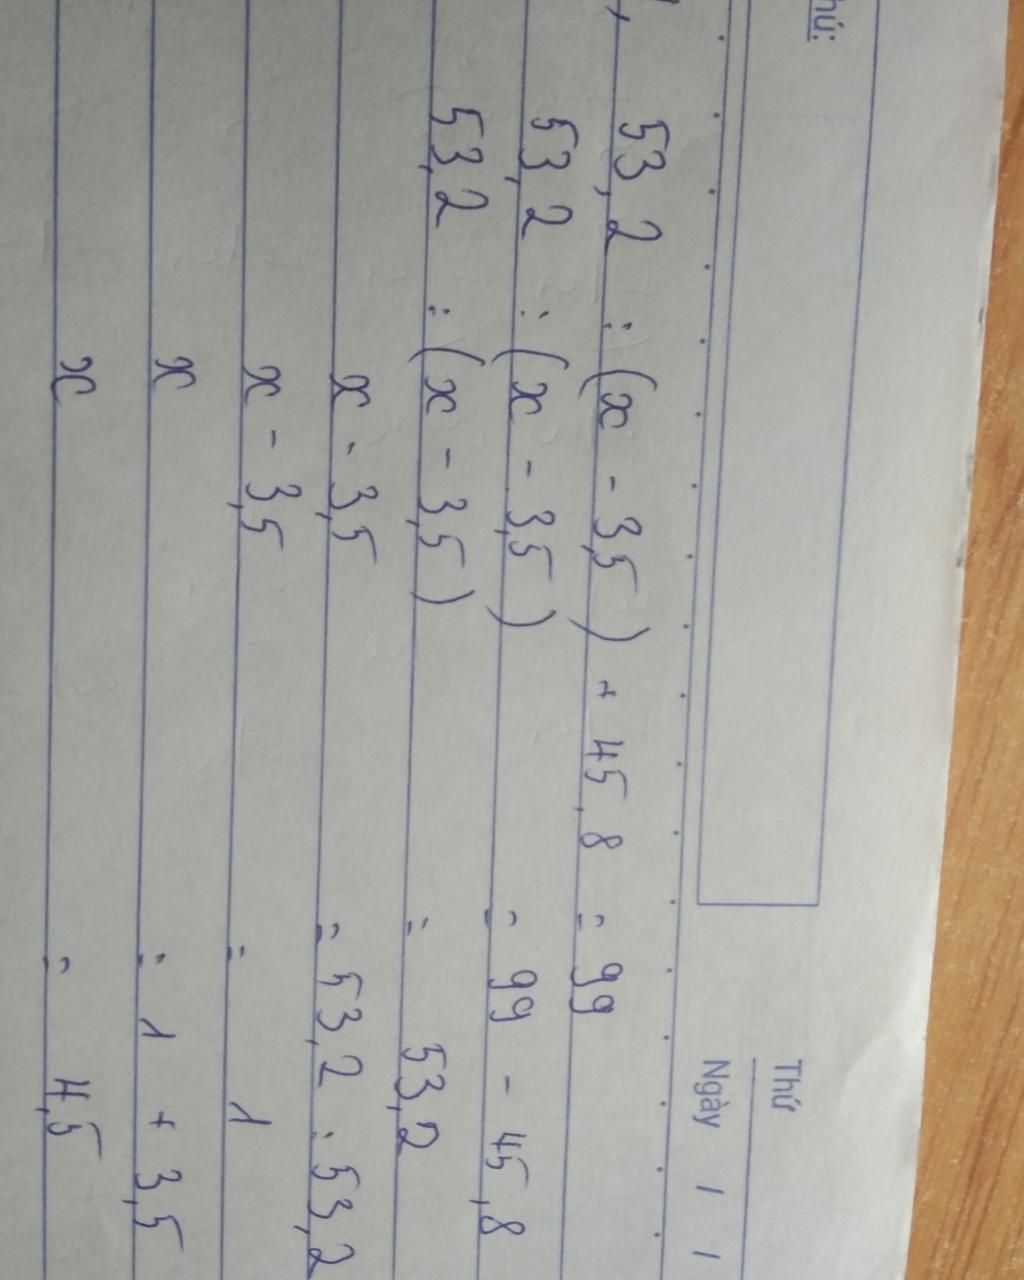 hú:
Thứ
Ngày / /
53,2 : (x - 3,5) + 45,8 = 99
53,2 : (x - 3,5) = 99 - 45,8
53,2 : (x - 3,5) = 53,2
x - 3,5 = 53,2 : 53,2
x - 3,5 = 1
x = 1 + 3,5
x = 4,5